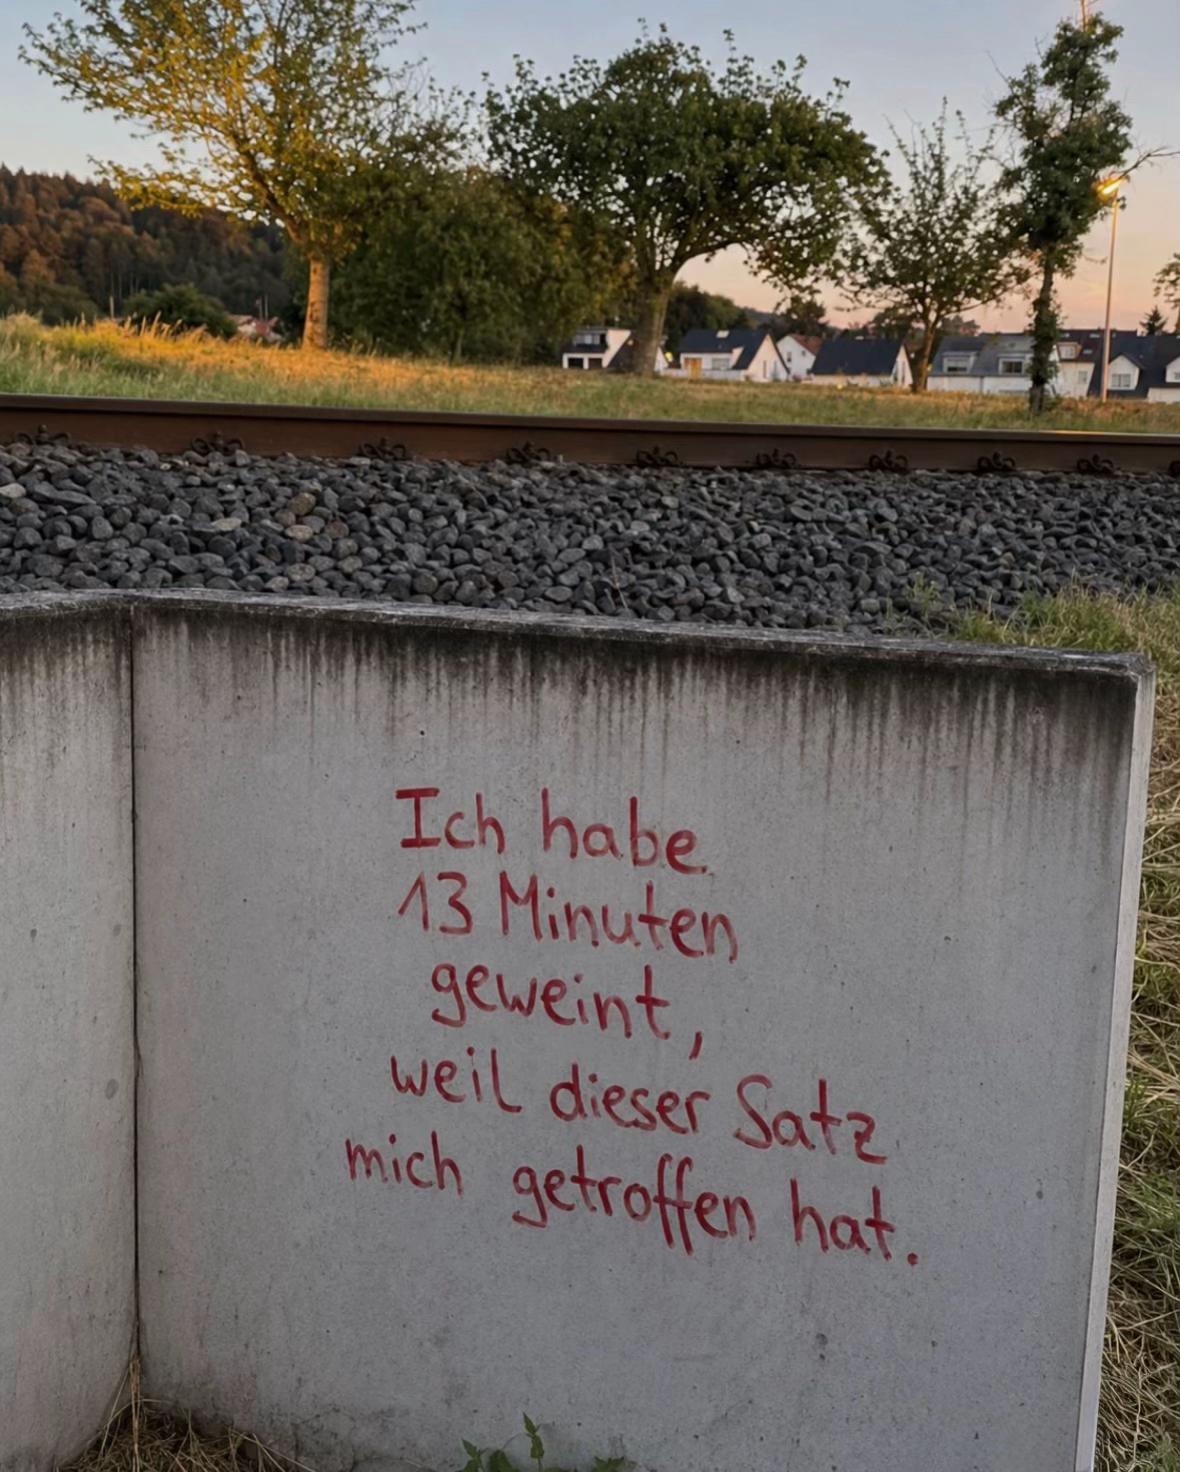 Ich habe
13 Minuten
geweint,
weil dieser Satz
mich getroffen hat.